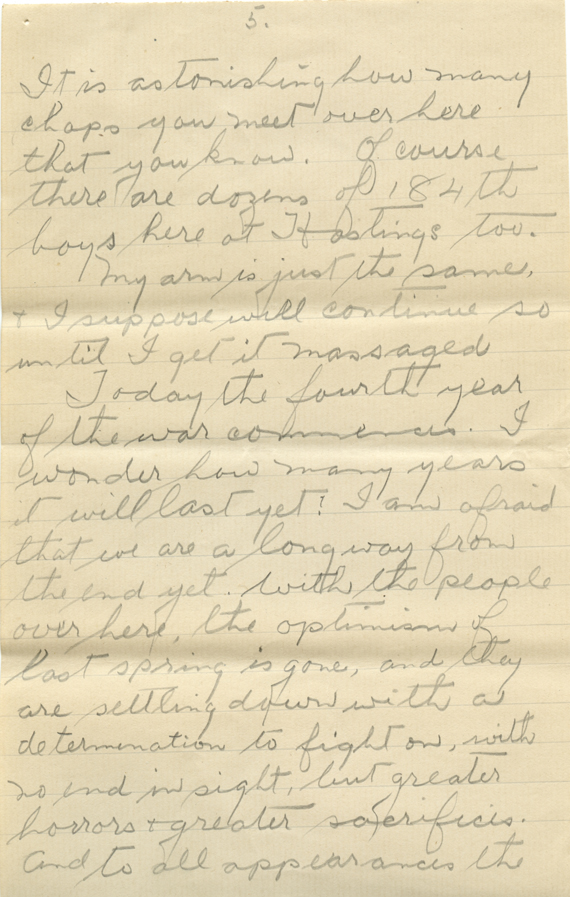 5.
It is astonishing how many
chaps you meet over here
that you know. Of course
there are dozens of 184th
boys here at Hastings too.
My arm is just the same,
+ I suppose will continue so
until I get it massaged
Today the fourth year
of the war commences. I
wonder how many years
it will last yet? I am afraid
that we are a long way from
the end yet. With the people
over here, the optimism of
last spring is gone, and they
are settling down with a
determination to fight on, with
no end in sight, but greater
horrors + greater sacrifices.
And to all appearances the